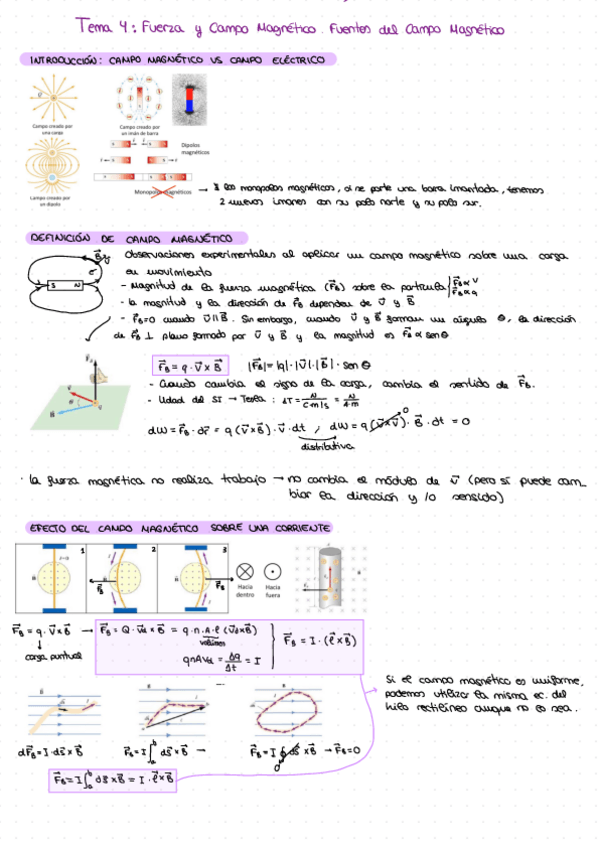 Tema 4: Fuerza y Campo Magnético. Fuentes del Campo Magnético
INTRODUCCIÓN: CAMPO MAGNÉTICO VS CAMPO ELÉCTRICO
Campo creado por
una carga
Campo creado por
un imán de barra
Dipolos
magnéticos
Campo creado por
un dipolo
Monopolos magnéticos
→ ∄ los monopolos magnéticos, si se parte una barra imantada, tenemos
2 nuevos imanes con su polo norte y su polo sur.
DEFINICIÓN DE CAMPO MAGNÉTICO
Observaciones experimentales al aplicar un campo magnético sobre una carga
en movimiento
S N
- Magnitud de la fuerza magnética (F⃗B) sobre la partícula | F⃗B ∝ v
F⃗B ∝ q
- La magnitud y la dirección de F⃗B dependen de v⃗ y B⃗
- F⃗B=0 cuando v⃗ || B⃗. Sin embargo, cuando v⃗ y B⃗ forman un ángulo θ, la dirección
de F⃗B ⊥ plano formado por v⃗ y B⃗ y la magnitud es F⃗B ∝ sen θ
F⃗B = q · v⃗ x B⃗ |F⃗B| = |q| · |v⃗| · |B⃗| · sen θ
- Cuando cambia el signo de la carga, cambia el sentido de F⃗B.
- Udad del SI → Tesla: 1T = N/(C·m/s) = N/(A·m)
dW = F⃗B · dr⃗ = q (v⃗ x B⃗) · v⃗ · dt , dW = q (v⃗ x v⃗) · B⃗ · dt = 0
distributiva
· La fuerza magnética no realiza trabajo → no cambia el módulo de v⃗ (pero sí puede cam
biar la dirección y/o sentido)
EFECTO DEL CAMPO MAGNÉTICO SOBRE UNA CORRIENTE
1 2 3
F⃗B F⃗B
Hacia
dentro
Hacia
fuera
F⃗B = q · v⃗ x B⃗ → F⃗B = Q · v⃗d x B⃗ = q·n·A·l (v⃗d x B⃗)
volumen
F⃗B = I · (l⃗ x B⃗)
carga puntual
qnAvd = Δq/Δt = I
Si el campo magnético es uniforme,
podemos utilizar la misma ec. del
hilo rectilíneo aunque no lo sea.
dF⃗B = I · ds⃗ x B⃗
F⃗B = I ∫ₐᵇ ds⃗ x B⃗ →
F⃗B = I ∮ ds⃗ x B⃗ → F⃗B = 0
F⃗B = I ∫ₐᵇ ds⃗ x B⃗ = I · l⃗ x B⃗